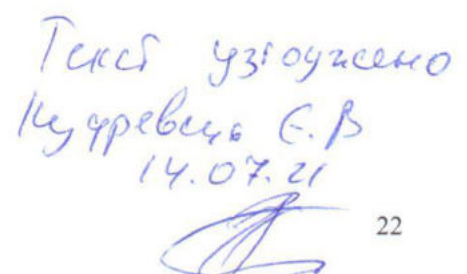 Текст узгоджено
Кудревець Є.В
14.07.21
22